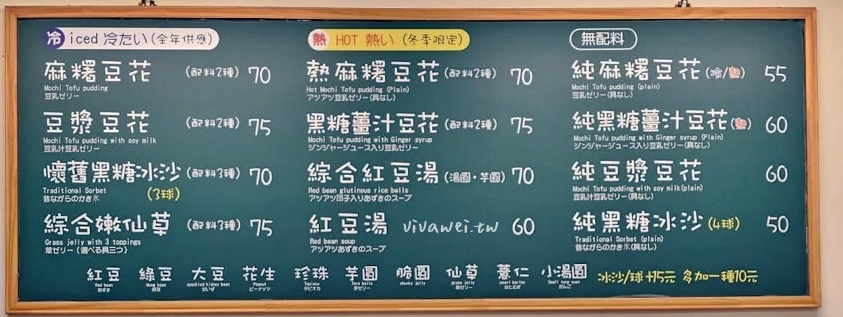 冷 iced 冷たい (全年供應)
麻糬豆花 (配料2種) 70
Mochi Tofu pudding
豆乳ゼリー
豆漿豆花 (配料2種) 75
Mochi Tofu pudding with soy milk
豆乳汁豆乳ゼリー
懷舊黑糖冰沙 (配料3種) 70
Traditional Sorbet
昔ながらのかき氷
(3球)
綜合嫩仙草 (配料3種) 75
Grass jelly with 3 toppings
草ゼリー (選べる具三つ)
熱 HOT 熱い (冬季限定)
熱麻糬豆花 (配料2種) 70
Hot Mochi Tofu pudding (Plain)
アツアツ豆乳ゼリー(具なし)
黑糖薑汁豆花 (配料2種) 75
Mochi Tofu pudding with Ginger syrup
ジンジャージュース入り豆乳ゼリー
綜合紅豆湯 (湯圓・芋圓) 70
Red bean glutinous rice balls
アツアツ団子入りあずきのスープ
紅豆湯 60
Red bean soup
アツアツあずきのスープ
無配料
純麻糬豆花 (冷/熱) 55
Mochi Tofu pudding (plain)
豆乳ゼリー(具なし)
純黑糖薑汁豆花 (熱) 60
Mochi Tofu pudding with Ginger syrup (Plain)
ジンジャージュース入り豆乳ゼリー(具なし)
純豆漿豆花 60
Mochi Tofu pudding with soy milk(plain)
豆乳汁豆乳ゼリー(具なし)
純黑糖冰沙 (4球) 50
Traditional Sorbet (plain)
昔ながらのかき氷(具なし)
vivawei.tw
紅豆 綠豆 大豆 花生 珍珠 芋圓 脆圓 仙草 薏仁 小湯圓 冰沙/球 +15元 多加一種10元
Red bean Mung bean speckled kidney bean Peanut Tapioca Taro balls chunky jelly grass jelly pearl barley Small tang yuan